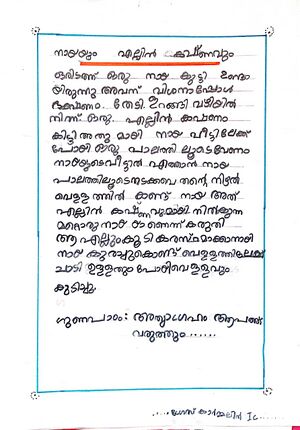 നായയും എല്ലിൻ കഷ്ണവും
ഒരിടത്ത് ഒരു നായ കുട്ടി ഉണ്ടാ
യിരുന്നു അവന് വിശന്നപ്പോൾ
ഭക്ഷണം തേടി ഇറങ്ങി വഴിയിൽ
നിന്ന് ഒരു എല്ലിൻ കഷണം
കിട്ടി അതു മായി നായ വീട്ടിലേക്ക്
പോയി ഒരു പാലത്തി ലൂടെവേണം
നായയുടെവീട്ടിൽ എത്താൻ നായ
പാലത്തിലൂടെനടക്കവെ തന്റെ നിഴൽ
വെള്ളത്തിൽ കണ്ട് നായ അത്
എല്ലിൻ കഷ്ണവുമായി നിൽക്കുന്ന
മറ്റൊരു നായ ആണെന്ന് കരുതി
ആ എല്ലുംകൂടി കരസ്ഥമാക്കാനായി
നായ കുരച്ചുകൊണ്ട് വെള്ളത്തിലേക്ക്
ചാടി ഉള്ളതും പോയിവെള്ളവും
കുടിച്ചു.
ഗുണപാഠം: അത്യാഗ്രഹം ആപത്ത്
വരുത്തും.......